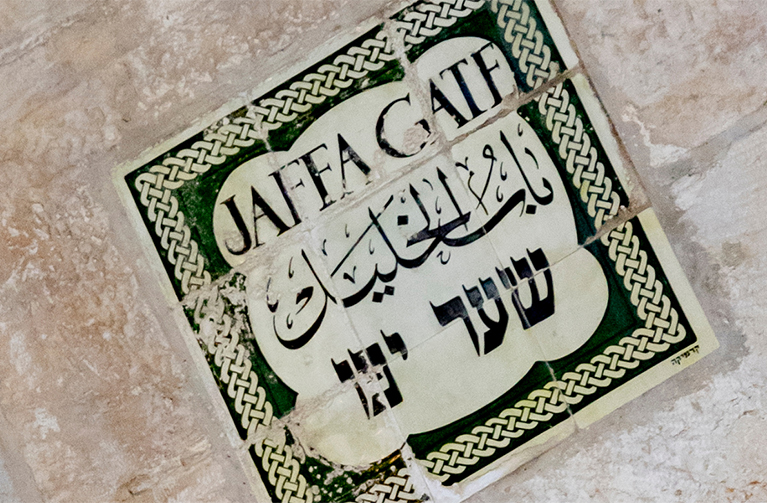 JAFFA GATE
باب الخليل
שער יפו
קרמיקה